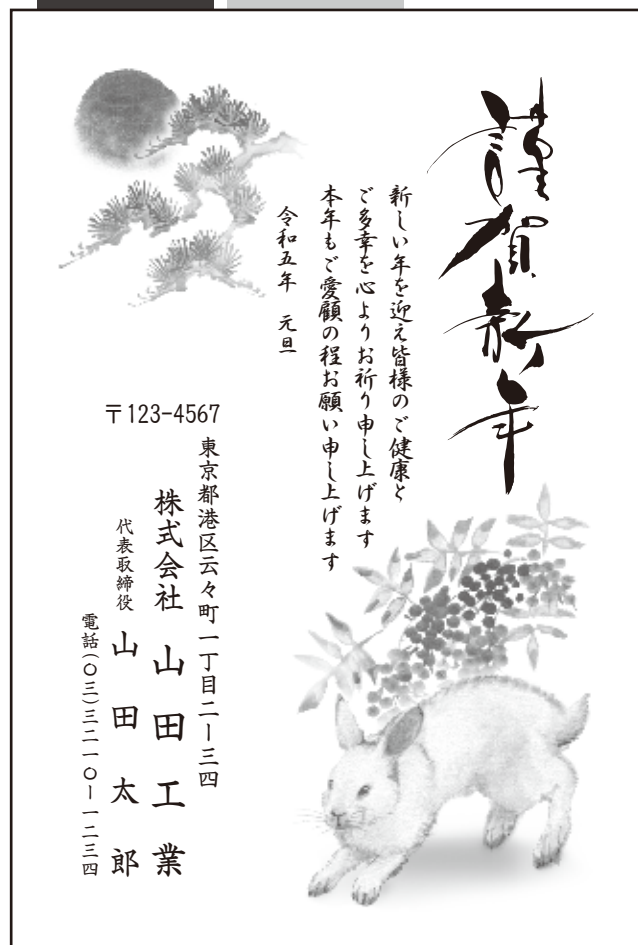 謹賀新年
新しい年を迎え皆様のご健康と
ご多幸を心よりお祈り申し上げます
本年もご愛顧の程お願い申し上げます
令和五年　元旦
〒123-4567
東京都港区云々町一丁目二ー三四
株式会社 山田工業
代表取締役 山田太郎
電話(〇三)三二一〇ー一二三四